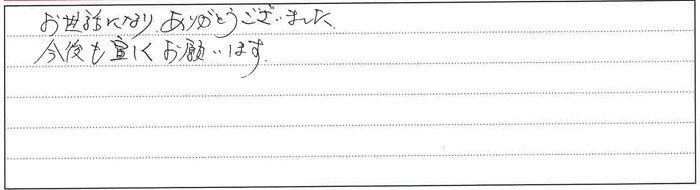 お世話になり、ありがとうございました。
今後も宜しくお願いします。